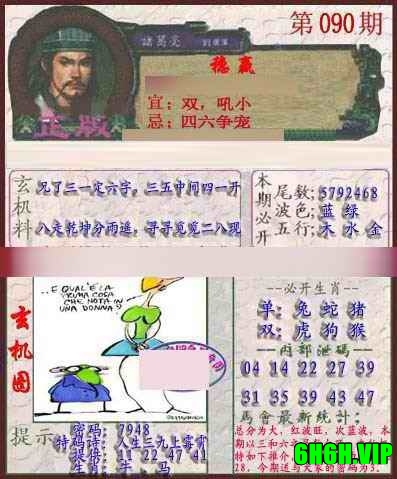 第090期
諸葛亮
稳赢
宜：双，吼小
忌：四六争宠
正版
玄机料
兄丁三一定六字，三五中间四一开
八走乾坤分雨遥，寻寻觅觅二八现
本期必开
尾数：5792468
波色：蓝 绿
五行：木 水 金
玄机图
..E QUAL'E LA
PRIMA COSA
CHE NOTA IN
UNA DONNA?
必开生肖
单：兔 蛇 猪
双：虎 狗 猴
内部泄码
04 14 22 27 39
31 35 39 43 47
馬會最新統計：
总分为大，红波旺，次蓝波，本
期以三和六
特如下推介
28，今期送与大家的密码为3.
提示
密码：7948
特码诗：人生三九上霄霄
提倍：11 22 47 41
生肖：牛、马
6HGH.VIP